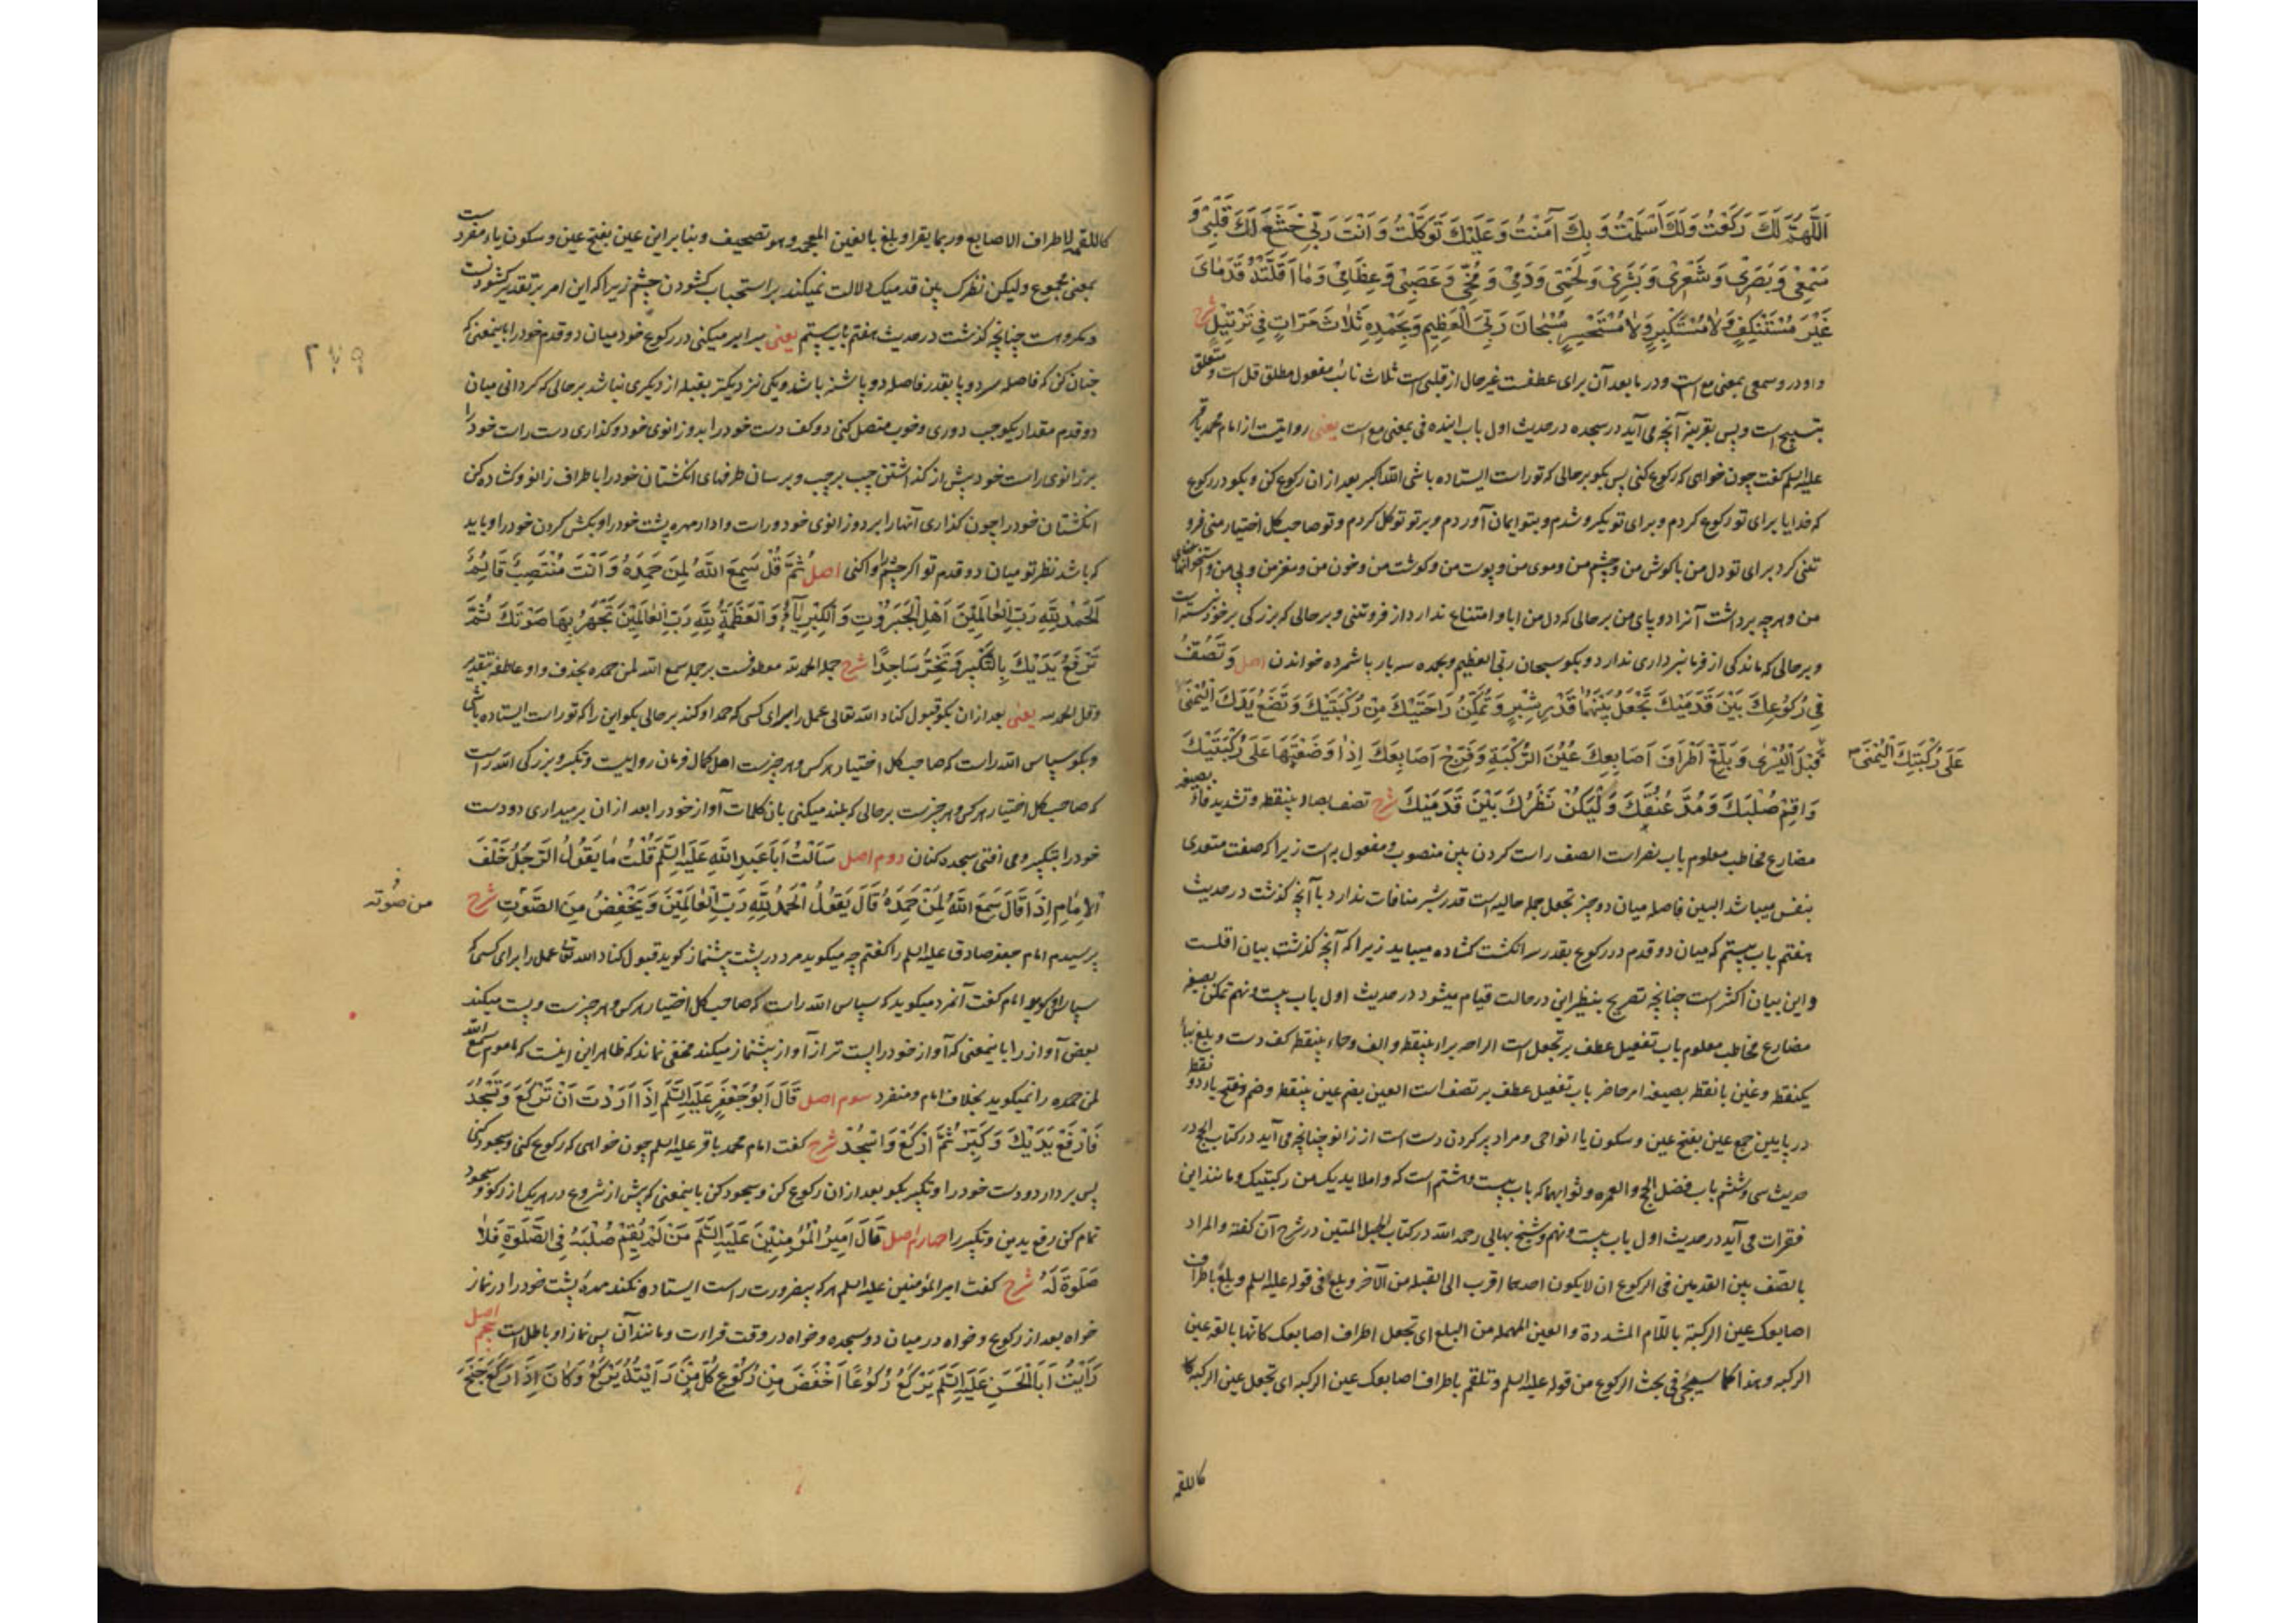 اَللّٰهُمَّ لَكَ رَكَعْتُ وَلَكَ اَسْلَمْتُ وَ بِكَ آمَنْتُ وَ عَلَيْكَ تَوَكَّلْتُ وَ اَنْتَ رَبّي خَشَعَ لَكَ قَلْبِيْ وَ
سَمْعِيْ وَ بَصَرِيْ وَ شَعْرِيْ وَ بَشَرِيْ وَ لَحْمِيْ وَ دَمِيْ وَ مُخّي وَ عَصَبِيْ وَ عِظَامِيْ وَ مٰا اَقَلَّتْهُ قَدَمٰاىَ
غَيْرَ مُسْتَنْكِفٍ وَلاٰ مُسْتَكْبِرٍ وَلاٰ مُسْتَحْسِرٍ سُبْحٰانَ رَبِّيَ الْعَظِيْمِ وَ بِحَمْدِهِ ثَلاٰثَ مَرّاتٍ فِي تَرْتِيْلٍ شرح
واو در و سمعي بمعنی مع است و در ما بعد آن برای عطفست غیر حال از قلبی است ثلاث نائب مفعول مطلق قل است و متعلق
بتسبیح است و بس بقرینه آنچه می آید در سجده در حدیث اول باب اینده فی بمعنی مع است یعنی روایتست از امام محمد باقر
علیه السلم گفت چون خواهی که رکوع کنی پس بگو بر حالی که تو راست ایستاده باشی الله اکبر بعد از ان رکوع کن و بگو در رکوع
که خدایا برای تو رکوع کردم و برای تو یکرو شدم و بتو ایمان آوردم و بر تو توکل کردم و تو صاحب کل اختیار منی فرو
تنی کرد برای تو دل من با گوش من و چشم من و موی من و پوست من و گوشت من و خون من و مغز من و پی من و استخوانهای
من و هرچه برداشت آنرا دو پای من بر حالی که دل من ابا و امتناع ندارد از فروتنی و بر حالی که بزرگی برخود نبسته است
و بر حالی که ماندگی از فرمانبرداری ندارد و بگو سبحان ربی العظیم و بحمده سه بار با شمرده خواندن اصل وَ تَصُفُّ
فِي رُكُوْعِكَ بَيْنَ قَدَمَيْكَ تَجْعَلُ بَيْنَهُمٰا قَدْرَ شِبْرٍ وَ تُمَكِّنُ رٰاحَتَيْكَ مِنْ رُكْبَتَيْكَ وَ تَضَعُ يَدَكَ الْيُمْنىٰ
عَلىٰ رُكْبَتِكَ الْيُمْنىٰ
قَبْلَ الْيُسْرىٰ وَ بَلِّغْ اَطْرٰافَ اَصٰابِعِكَ عُيُنَ الرُّكْبَةِ وَ فَرِّجْ اَصٰابِعَكَ اِذٰا وَضَعْتَهٰا عَلىٰ رُكْبَتَيْكَ
وَ اَقِمْ صُلْبَكَ وَ مُدَّ عُنُقَكَ وَ لْيَكُنْ نَظَرُكَ بَيْنَ قَدَمَيْكَ شرح تصف بصاد بینقطه و تشدید فاء بصیغه
مضارع مخاطب معلوم باب نصر است الصف راست کردن بین منصوب و مفعول به است زیرا که صفت متعدی
بنفس میباشد البین فاصله میان دو چیز تجعل جمله حالیه است قدر شبر منافات ندارد با آنچه گذشت در حدیث
هفتم باب بیستم که میان دو قدم در رکوع بقدر سه انگشت گشاده میباید زیرا که آنچه گذشت بیان اقلست
و این بیان اکثر است چنانچه تصریح بنظیر این در حالت قیام میشود در حدیث اول باب بیست و نهم تمکن بصیغه
مضارع مخاطب معلوم باب تفعیل عطف بر تجعل است الراحه براء بینقطه و الف و حاء بینقطه کف دست و بلغ بباء
یکنقطه و غین با نقطه بصیغه امر حاضر باب تفعیل عطف بر تصف است العین بضم عین بینقطه و ضم و فتح یاء دو نقطه
در پایین جمع عین بفتح عین و سکون یاء نواحی و مراد پر کردن دست است از زانو چنانچه می آید در کتاب الحج در
حدیث سی و ششم باب فضل الحج و العمره و ثوابهما که باب بیست و هشتم است که و املا یدیک من رکبتیک و مانند این
فقرات می آید در حدیث اول باب بیست و نهم و شیخ بهائی رحمه الله در کتاب حبل المتین در شرح آن گفته و المراد
بالصف بین القدمین فی الرکوع ان لا یکون احدهما اقرب الی القبله من الآخر و بلع فی قوله علیه السلم و بلع باطراف
اصابعک عین الرکبة باللام المشددة و العین المهمله من البلع ای تجعل اطراف اصابعک کانها بالعه عین
الرکبه و هذا کما سیجیٔ فی بحث الرکوع من قوله علیه السلم و تلقم باطراف اصابعک عین الرکبه ای تجعل عین الرکبه کا
کاللقمه
کاللقمه لاطراف الاصابع و ربما یقرا و بلغ بالغین المعجمه و هو تصحیف و بنا بر این عین بفتح عین و سکون یاء مفرد است
بمعنی مجموع و لیکن نظرک بین قدمیک دلالت نمیکند بر استحباب گشودن چشم زیرا که این امر بر تقدیر گشودنست
و مکروهست چنانچه گذشت در حدیث هفتم باب بیستم یعنی و برابر میکنی در رکوع خود میان دو قدم خود را باینمعنی که
چنان کن که فاصله سر دو پا بقدر فاصله دو پاشنه باشد و یکی نزدیکتر بقبله از دیگری نباشد بر حالی که گردانی میان
دو قدم مقدار یکوجب دوری و خوب متصل کنی دو کف دست خود را بدو زانوی خود و گذاری دست راست خود را
بر زانوی راست خود پیش از گذاشتن چپ بر چپ و برسان طرفهای انگشتان خود را باطراف زانو و گشاده کن
انگشتان خود را چون گذاری آنها را بر دو زانوی خود و راست وادار مهره پشت خود را و بکش گردن خود را و باید
که باشد نظر تو میان دو قدم تو اگر چشم را وا کنی اصل ثُمَّ قُلْ سَمِعَ اللّٰهُ لِمَنْ حَمِدَهُ وَ اَنْتَ مُنْتَصِبٌ قٰائِمٌ
اَلْحَمْدُ لِلّٰهِ رَبِّ الْعٰالَمِيْنَ اَهْلَ الْجَبَرُوْتِ وَ الْكِبْرِيٰاءِ وَ الْعَظَمَةُ لِلّٰهِ رَبِّ الْعٰالَمِيْنَ تَجْهَرُ بِهٰا صَوْتَكَ ثُمَّ
تَرْفَعُ يَدَيْكَ بِالتَّكْبِيْرِ وَ تَخِرُّ سٰاجِدًا شرح جمله الحمد لله معطوفست بر جمله سمع الله لمن حمده بحذف واو عاطفه بتقدیر
و قل الحمد لله یعنی بعد از ان بگو قبول کناد الله تعالی عمل را برای کسی که حمد او کند بر حالی بگو این را که تو راست ایستاده باشی
و بگو سپاس الله راست که صاحب کل اختیار هر کس و هر چیز است اهل کمال فرمان رواییت و تکبر و بزرگی الله راست
که صاحب کل اختیار هر کس و هر چیز است بر حالی که بلند میکنی بان کلمات آواز خود را بعد از ان بر میداری دو دست
خود را بتکبیر و می افتی سجده کنان دوم اصل سَاَلْتُ اَبٰا عَبْدِ اللّٰهِ عَلَيْهِ السَّلَمُ قُلْتُ مٰا يَقُوْلُ الرَّجُلُ خَلْفَ
الْاِمٰامِ اِذٰا قٰالَ سَمِعَ اللّٰهُ لِمَنْ حَمِدَهُ قٰالَ يَقُوْلُ اَلْحَمْدُ لِلّٰهِ رَبِّ الْعٰالَمِيْنَ وَ يَخْفِضُ مِنَ الصَّوْتِ شرح
من صوته
پرسیدم امام جعفر صادق علیه السلم را گفتم چه میگوید مرد در پشت پیشنماز گوید قبول کناد الله تعالی عمل را برای کسی که
سپاس او گوید امام گفت آنمرد میگوید که سپاس الله راست که صاحب کل اختیار هر کس و هر چیز است و پست میکند
بعض آواز را باینمعنی که آواز خود را پست تر از آواز پیشنماز میکند مخفی نماند که ظاهر این اینست که ماموم سمع الله
لمن حمده را نمیگوید بخلاف امام و منفرد سوم اصل قٰالَ اَبُوْ جَعْفَرٍ عَلَيْهِ السَّلَمُ اِذٰا اَرَدْتَ اَنْ تَرْكَعَ وَ تَسْجُدَ
فَارْفَعْ يَدَيْكَ وَ كَبِّرْ ثُمَّ ارْكَعْ وَ اسْجُدْ شرح گفت امام محمد باقر علیه السلم چون خواهی که رکوع کنی و سجود کنی
پس بردار دو دست خود را و تکبیر بگو بعد از ان رکوع کن و سجود کن باینمعنی که پیش از شروع در هریک از رکوع و سجود
تمام کن رفع یدین و تکبیر را چهارم اصل قٰالَ اَمِيْرُ الْمُؤْمِنِيْنَ عَلَيْهِ السَّلَمُ مَنْ لَمْ يُقِمْ صُلْبَهُ فِي الصَّلٰوةِ فَلاٰ
صَلٰوةَ لَهُ شرح گفت امیر المؤمنین علیه السلم هر که بیضرورت راست ایستاده نکند مهره پشت خود را در نماز
خواه بعد از رکوع و خواه در میان دو سجده و خواه در وقت قراءت و مانند آن پس نماز او باطل است پنجم اصل
رَاَيْتُ اَبَا الْحَسَنِ عَلَيْهِ السَّلَمُ يَرْكَعُ رُكُوْعًا اَخْفَضَ مِنْ رُكُوْعِ كُلِّ مَنْ رَاَيْتُهُ يَرْكَعُ وَ كٰانَ اِذٰا رَكَعَ جَنَّحَ